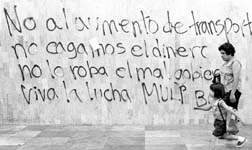 No al aumento de transport
no cagamos el dinero
no lo roba el mal gobier
viva la lucha MULP B